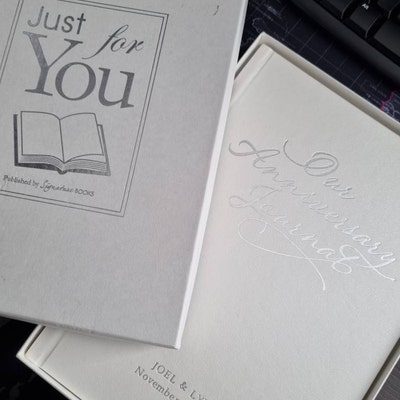 Just for
You
Published by Signature BOOKS
Our
Anniversary
Journal
JOEL &
November